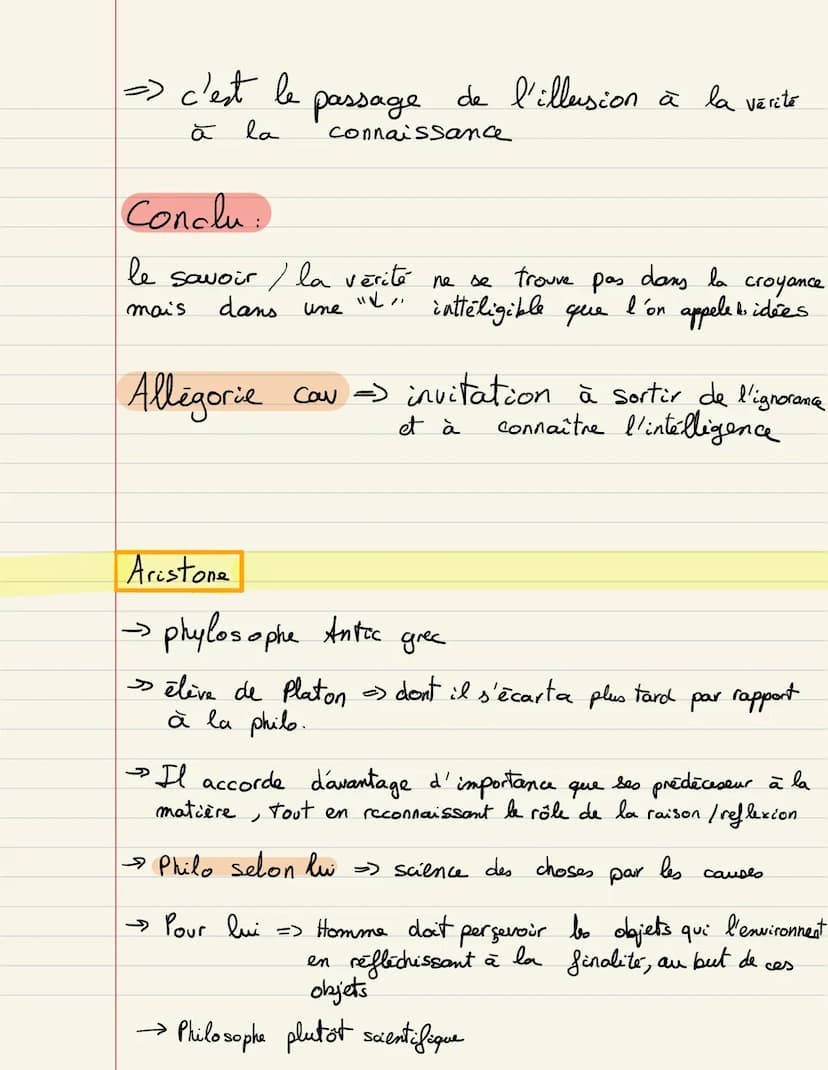 => c'est le passage de l'illusion à la vérité
à la connaissance
Conclu :
le savoir / la vérité ne se trouve pas dans la croyance
mais dans une "↓" inttéligible que l'on appele les idées
Allégorie cav => invitation à sortir de l'ignorance
et à connaître l'intelligence
Aristone
-> phylosophe Antic grec
->> élève de Platon => dont il s'écarta plus tard par rapport
à la philo.
-> Il accorde d'avantage d'importance que ses prédéceseur à la
matière, tout en reconnaissant le rôle de la raison / reflexion
-> Philo selon lui => science des choses par les causes
-> Pour lui => Homme doit perçevoir les objets qui l'environnent
en réfléchissant à la finalité, au but de ces
objets
-> Philosophe plutôt scientifique